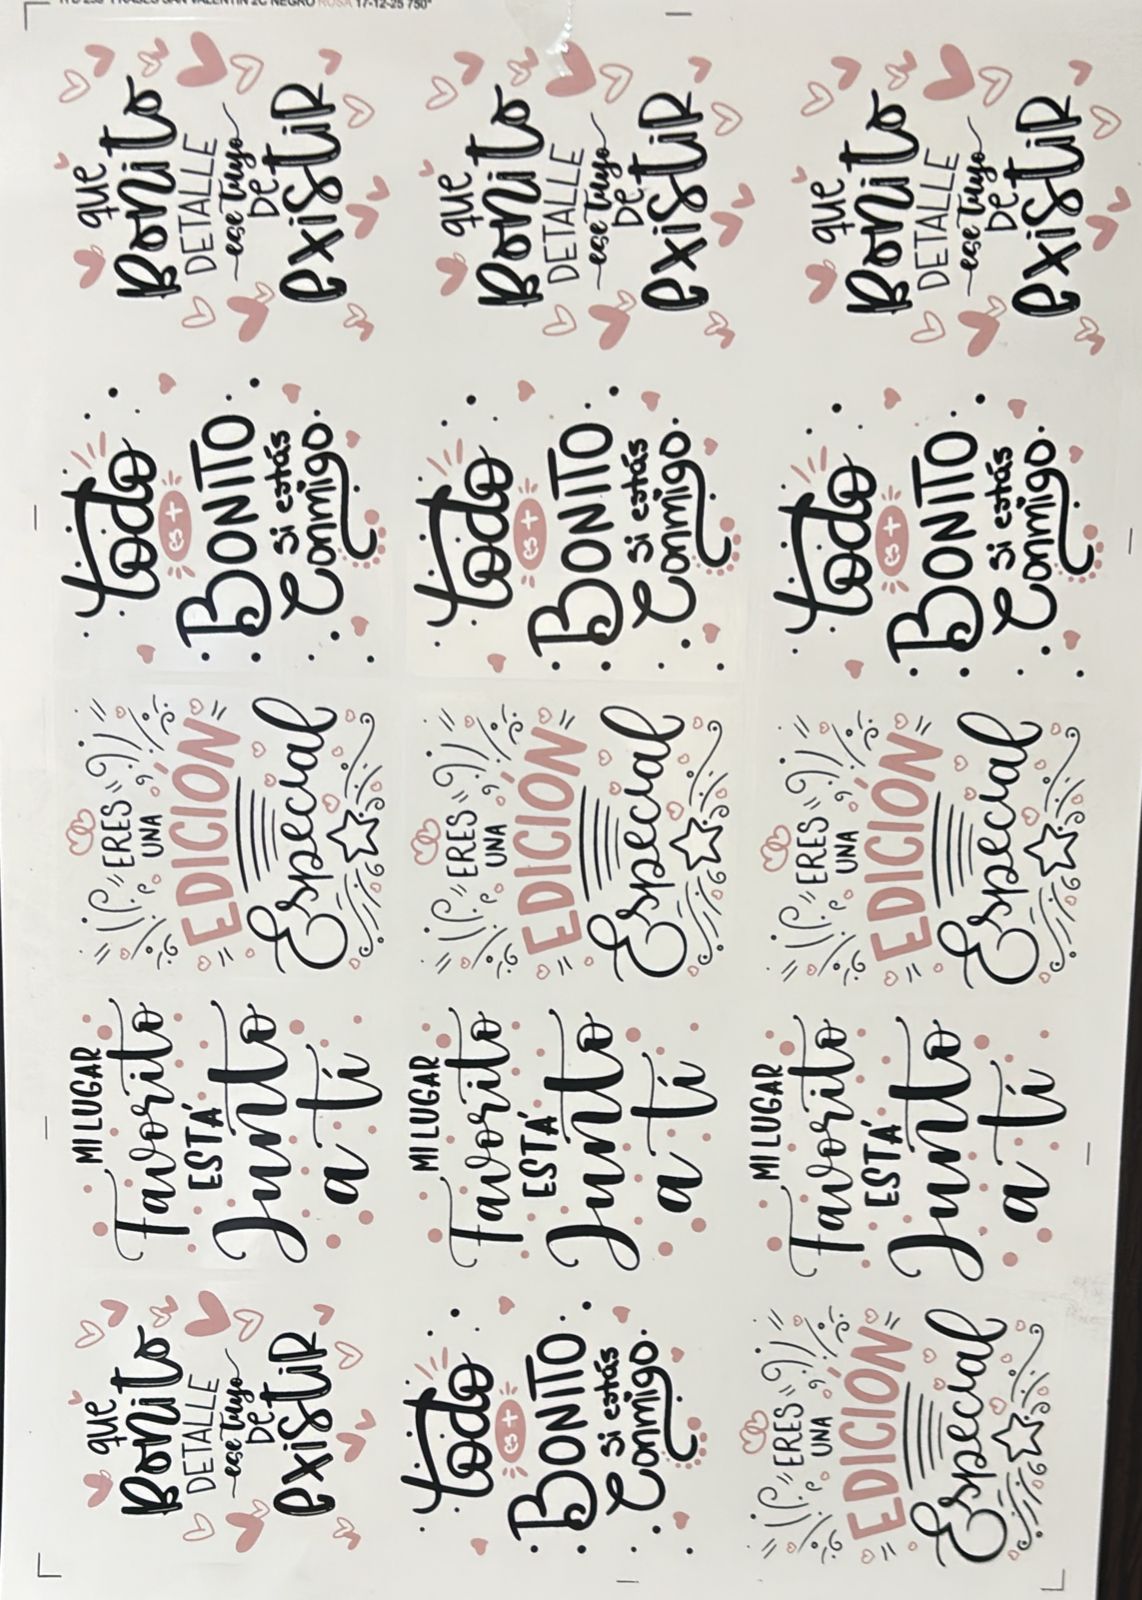 FRASES SAN VALENTIN 2C NEGRO ROSA 17-12-25 750°
que
Bonito
DETALLE
ese tuyo
DE
existir
que
Bonito
DETALLE
ese tuyo
DE
existir
que
Bonito
DETALLE
ese tuyo
DE
existir
todo
es +
BONITO
si estás
conmigo.
todo
es +
BONITO
si estás
conmigo.
todo
es +
BONITO
si estás
conmigo.
ERES
UNA
EDICIÓN
Especial
ERES
UNA
EDICIÓN
Especial
ERES
UNA
EDICIÓN
Especial
MI LUGAR
Favorito
ESTÁ
Junto
a tí
MI LUGAR
Favorito
ESTÁ
Junto
a tí
MI LUGAR
Favorito
ESTÁ
Junto
a tí
que
Bonito
DETALLE
ese tuyo
DE
existir
todo
es +
BONITO
si estás
conmigo.
ERES
UNA
EDICIÓN
Especial